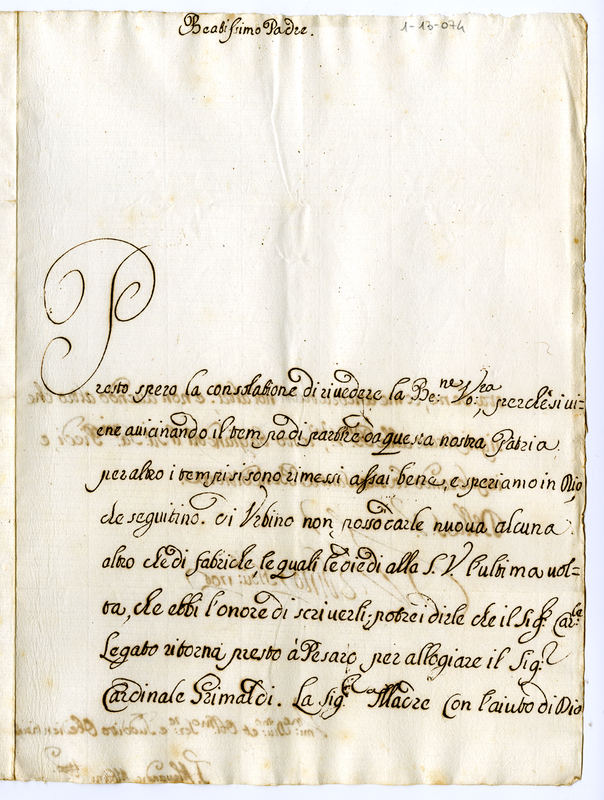 Beatissimo Padre.
1-13-074
Presto spero la consolatione di rivedere la Be:ne Vo:ra, perche si vi=
ene avicinando il tempo di partire da questa nostra Patria.
per altro i tempi si sono rimessi assai bene, e speriamo in Dio,
che seguitino. di Urbino non posso darle nuova alcuna
altro che di fabriche, le quali le diedi alla S. V. l'ultima vol=
ta, che ebbi l'onore di scriverli; potrei dirle che il Sig.r Car:le
Legato ritorna presto à Pesaro, per allogiare il Sig.r
Cardinale Grimaldi. La Sig.ra Madre con l'aiuto di Dio